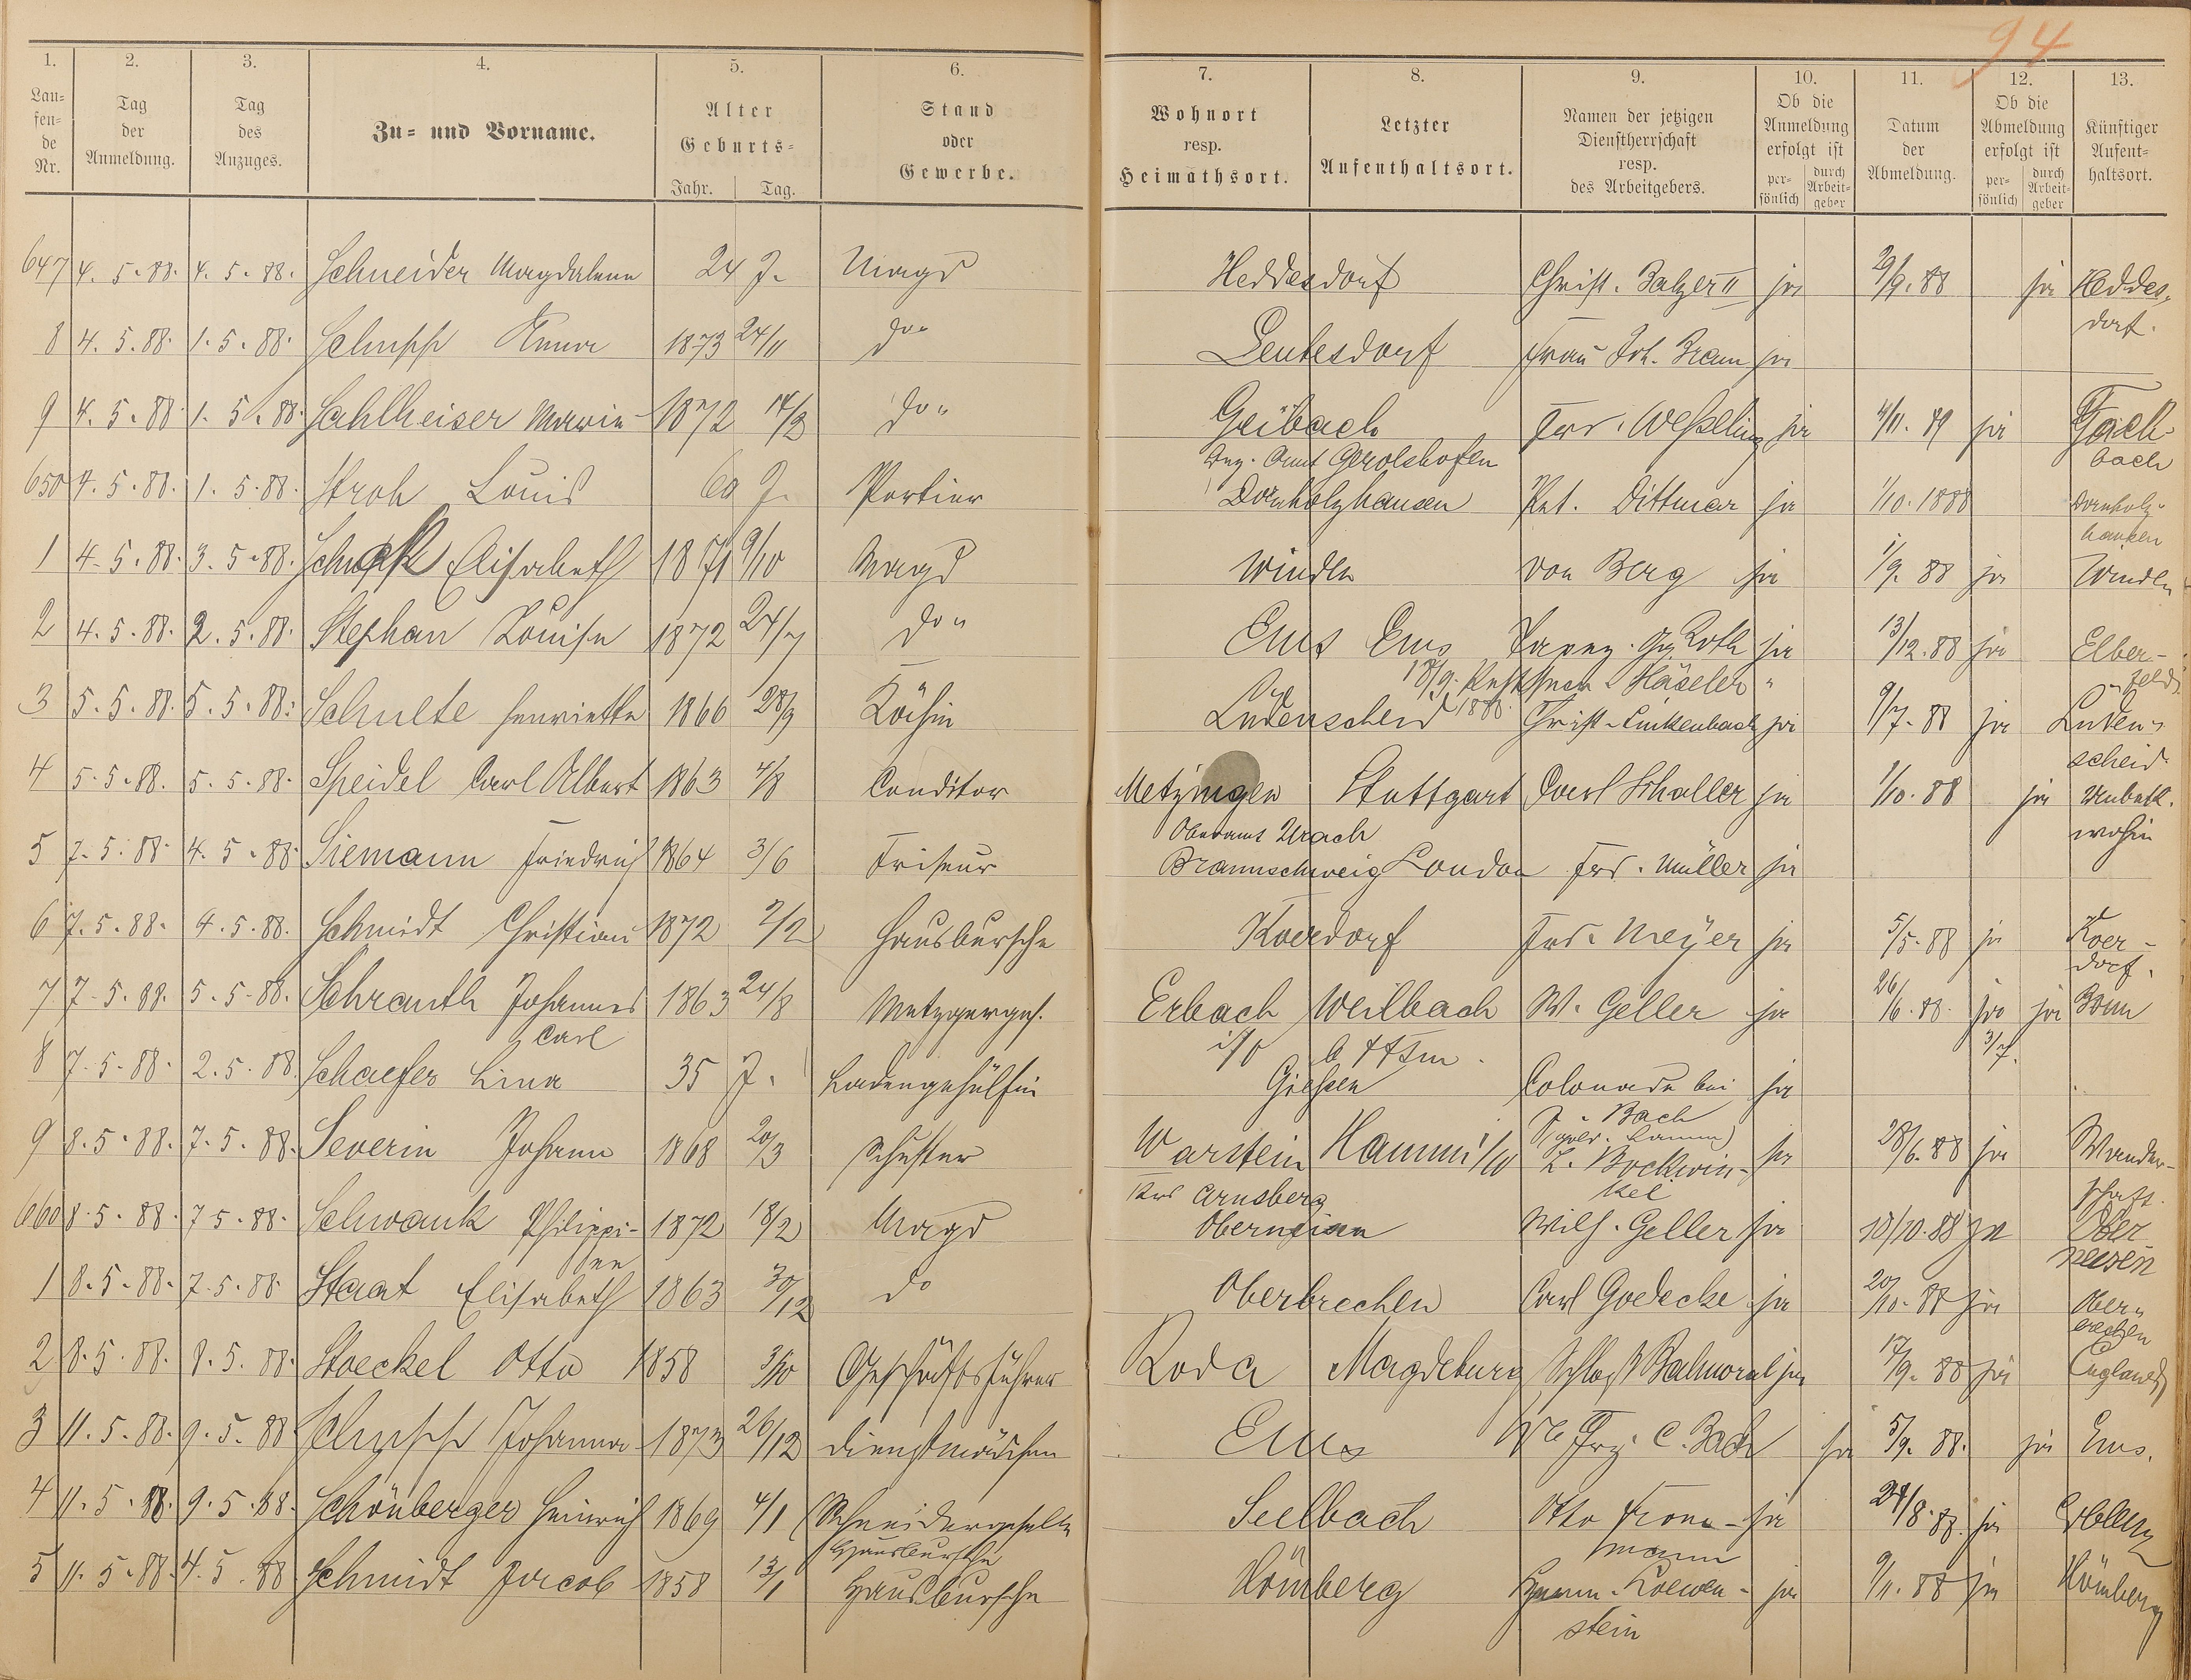 94
1. 2. 3. 4. 5. 6. 7. 8. 9. 10. 11. 12. 13.
Lau=fen=de Nr. Tag der Anmeldung. Tag des Anzuges. Zu= und Vorname. Alter Geburts= Jahr. Tag. Stand oder Gewerbe. Wohnort resp. Heimathsort. Letzter Aufenthaltsort. Namen der jetzigen Dienstherrschaft resp. des Arbeitgebers. Ob die Anmeldung erfolgt ist per=sönlich durch Arbeit=geber Datum der Abmeldung. Ob die Abmeldung erfolgt ist per=sönlich durch Arbeit=geber Künftiger Aufent=haltsort.
647 4. 5. 88. 4. 5. 88. Schneider Magdalena 24 J. Magd Heddesdorf Christ. Balzer II ja 29/9. 88 ja Heddes-
dorf.
8 4. 5. 88. 1. 5. 88. Schupp Anna 1873 24/11 do" Leutesdorf Frau Joh. Braun ja
9 4. 5. 88. 1. 5. 88. Sahlheiser Maria 1872 14/2 do" Geibach Frd. Weßling ja 4/11. 89 ja
bach
Bez. Amt Gerolshofen
650 4. 5. 88. 1. 5. 88. Stroh Louis 60 J. Portier Dornholzhausen Pet. Dittmar ja 1/10. 1888 Dornholz-
hausen
1 4. 5. 88. 3. 5. 88. Elisabeth 1871 9/10 Magd Winden von Berg ja 1/9. 88 ja Winden
2 4. 5. 88. 2. 5. 88. Stephan Louise 1872 24/7 do" Ems Ems Roth ja 13/12. 88 ja Elber-
feld
18/9. 1888 Häseler "
3 5. 5. 88. 5. 5. 88. Schulte Henriette 1866 28/9 Köchin Lüdenscheid Christ. Linkenbach ja 9/7. 88 ja Lüden-
scheid.
4 5. 5. 88. 5. 5. 88. Speidel Carl Albert 1863 4/8 Conditor Metzingen Stuttgart Carl Schaller ja 1/10. 88 ja Unbek.
wohin
Oberamt Urach
5 7. 5. 88. 4. 5. 88. Siemann Friedrich 1864 3/6 Friseur Braunschweig London Frd. Müller ja
6 7. 5. 88. 4. 5. 88. Schmidt Christian 1872 2/2 Hausbursche Koerdorf Frd. Meyer ja 5/5. 88 ja Koer-
dorf.
7 7. 5. 88. 5. 5. 88. Schrauth Johannes 1863 24/8 Metzgerges. Erbach Weilbach W. Geller ja 26/6. 88. ja ja Bonn
Carl i/O 3/7.
8 7. 5. 88. 2. 5. 88. Schaefer Lina 35 J. Ladengehülfin Gießen Colonade bei ja
Bach
9 8. 5. 88. 7. 5. 88. Severin Johann 1868 20/3 Schuster Warstein Hamm i/W L. Bockwin- ja 28/6. 88 ja Wander-
schaft.
Krs Arnsberg kel
660 8. 5. 88. 7 5. 88. Schwank Philippi- 1872 18/2 Magd Oberneisen Wilh. Geller ja 18/10. 88 ja Ober
neisen
nen
1 8. 5. 88. 7. 5. 88 Staat Elisabeth 1863 30/12 do Oberbrechen Carl Goedecke ja 20/10. 88 ja Ober-
brechen
2 8. 5. 88. 8. 5. 88. Stoeckel Otto 1858 3/10 Geschäftsführer Roda Magdeburg Schloß Balmoral ja 17/9. 88 ja England
3 11. 5. 88. 9. 5. 88 Schupp Johanna 1873 26/12 Dienstmädchen Ems Wte Frz. C. Bach ja 5/9. 88. ja Ems.
4 11. 5. 88. 9. 5. 88. Schönberger Heinrich 1869 4/1 Schneidergeselle Seelbach Otto Krone- ja 24/8. 88. ja Coblenz
Hausbursche mann
5 11. 5. 88. 4. 5. 88 Schmidt Jacob 1858 13/1 Hausbursche Hömberg Herm. Loewen- ja 9/11. 88 ja Hömberg
stein